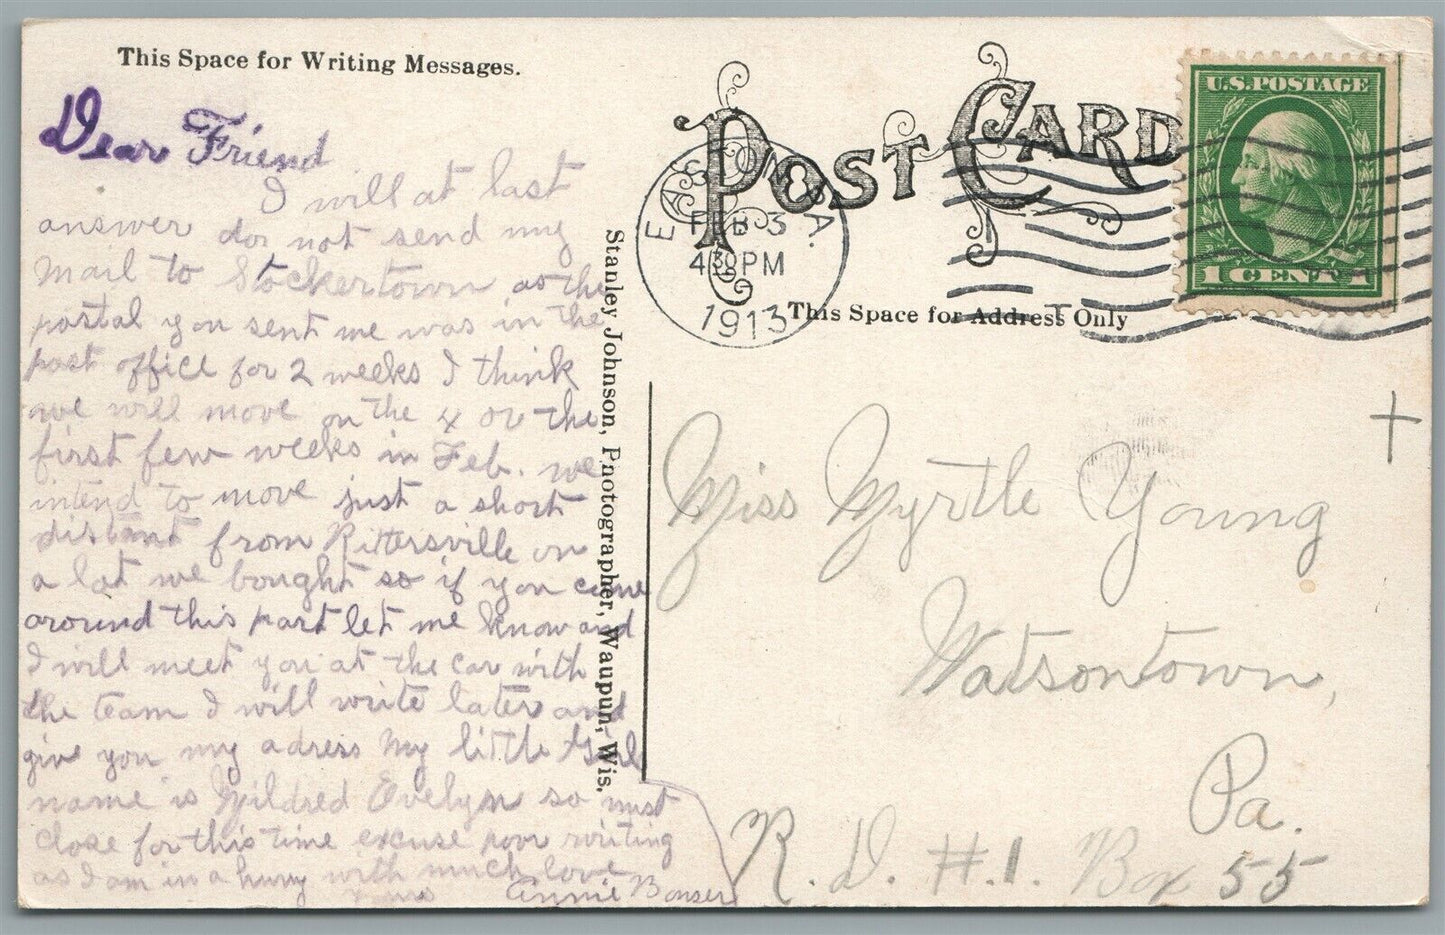 This Space for Writing Messages.
Dear Friend
I will at last
answer do not send my
mail to Stockertown as the
postal you sent me was in the
post office for 2 weeks I think
we will move on the 4 or the
first few weeks in Feb. we
intend to move just a short
distant from Rittersville on
a lot we bought so if you come
around this part let me know and
I will meet you at the car with
the team I will write later and
give you my adress My little Girl
name is Mildred Evelyn so must
close for this time excuse poor writing
as I am in a hurry with much love
yours Annie Bonser
Stanley Johnson, Photographer, Waupun, Wis.
POST CARD
EASTON, PA.
FEB 3
4 30 PM
1913
U.S. POSTAGE
1 CENT 1
This Space for Address Only
Miss Myrtle Young
Watsontown,
Pa.
R. D. #.1. Box 55